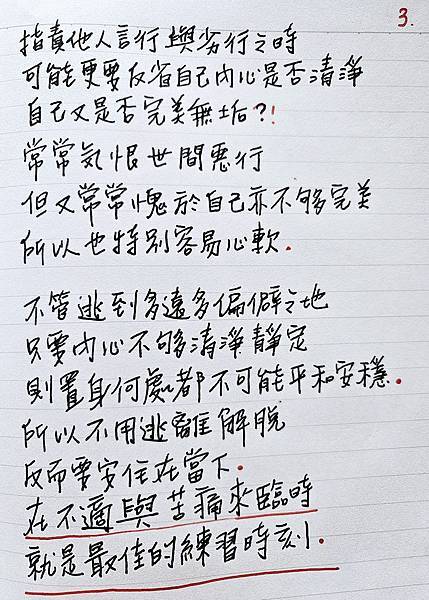 3.
指責他人言行與劣行之時
可能更要反省自己內心是否清淨
自己又是否完美無垢?!
常常気恨世間惡行
但又常常愧於自己亦不夠完美
所以也特別容易心軟.
不管逃到多遠多偏僻之地
只要內心不夠清淨靜定
則置身何處都不可能平和安穩.
所以不用逃離解脫
反而要安住在當下.
在不適與苦痛來臨時
就是最佳的練習時刻.